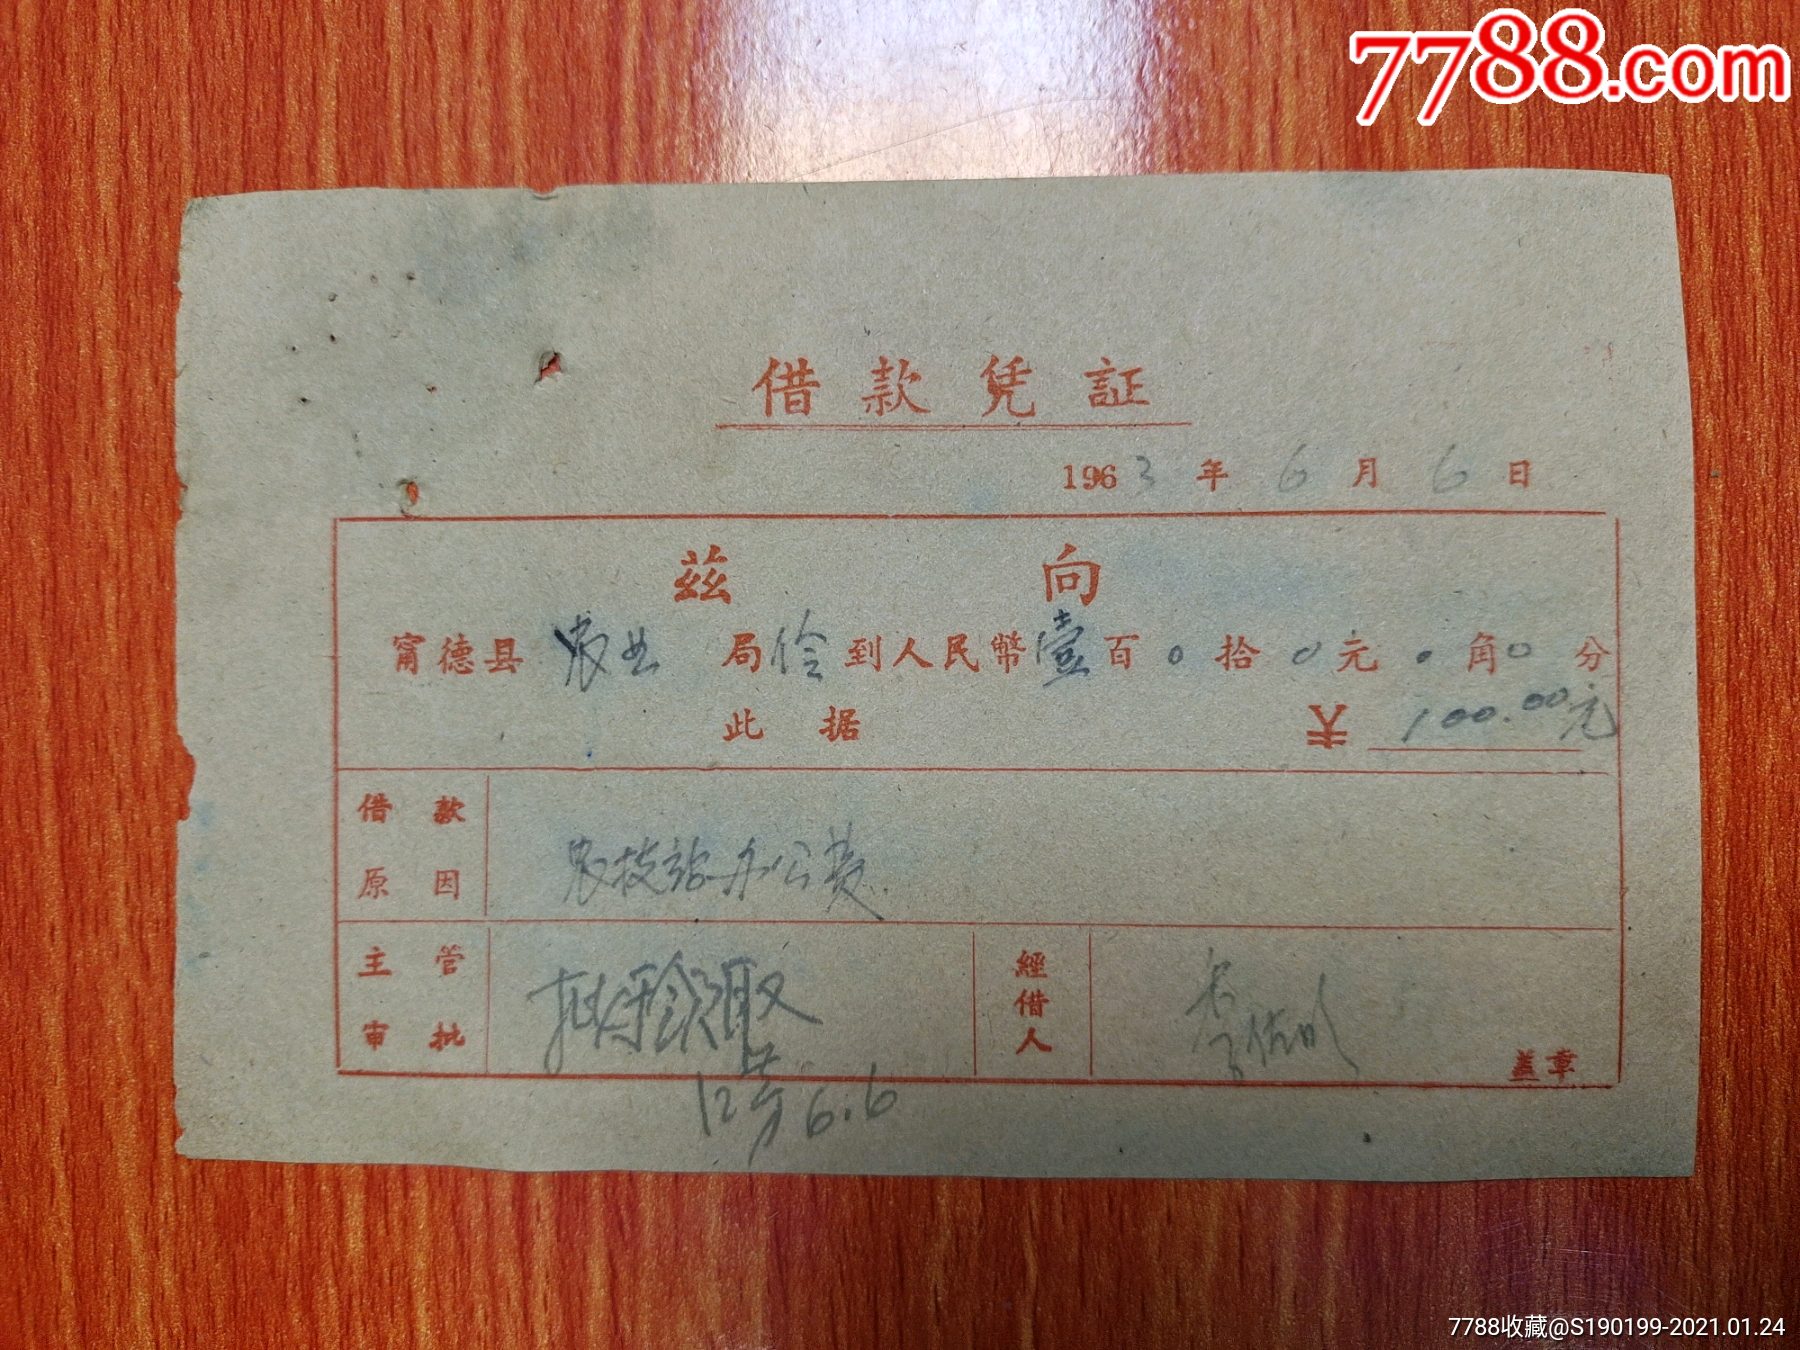 7788.com
借款凭証
1963年6月6日
兹向
甯德县农业局 到人民幣壹百0拾0元0角0分
此据 ¥ 100.00元
借款原因 农技站办公费
主管審批 取
6.6
經借人
盖章
7788收藏@S190199-2021.01.24